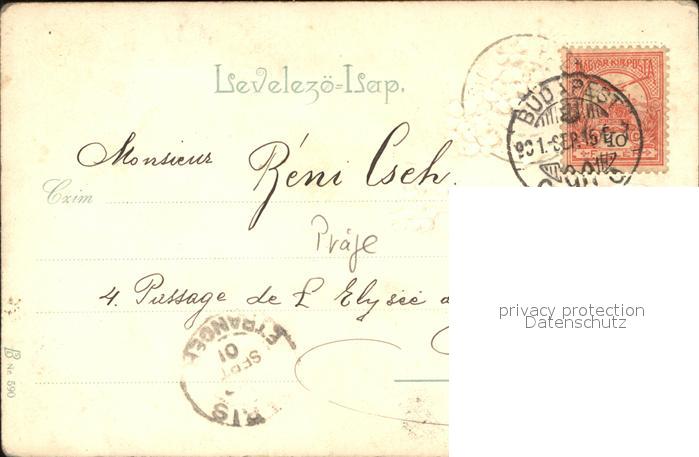 Levelező=Lap.
MAGYAR KIR. POSTA
10
BUDAPEST
901. SEP. 15
Monsieur Réni Cseh.
Czim
Práje
4. Passage de L Elysée
privacy protection
Datenschutz
ETRANGER
SEPT
01
No 590